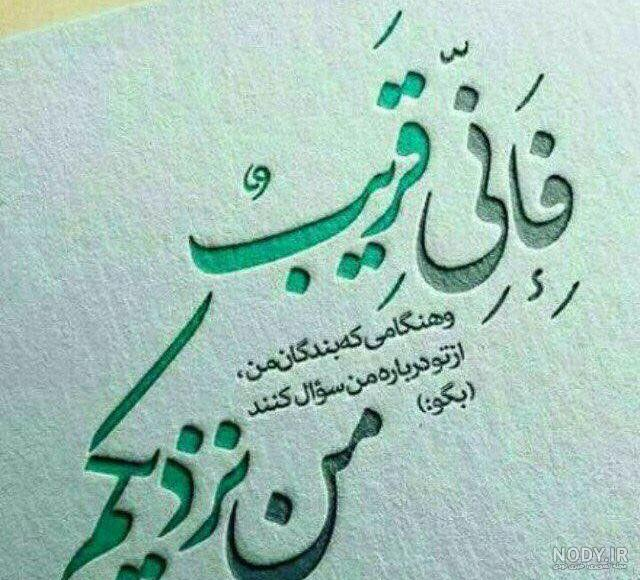 فَإِنِّی قَرِیبٌ
و هنگامی که بندگان من،
از تو درباره من سؤال کنند
(بگو:)
من نزدیکم
NODY.IR